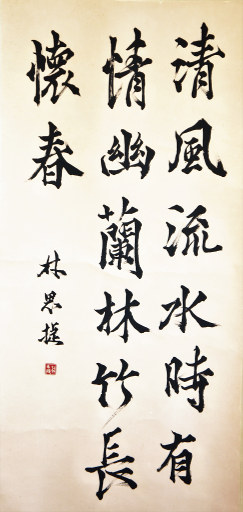 清風流水時有
情幽蘭林竹長
懷春
林思捷